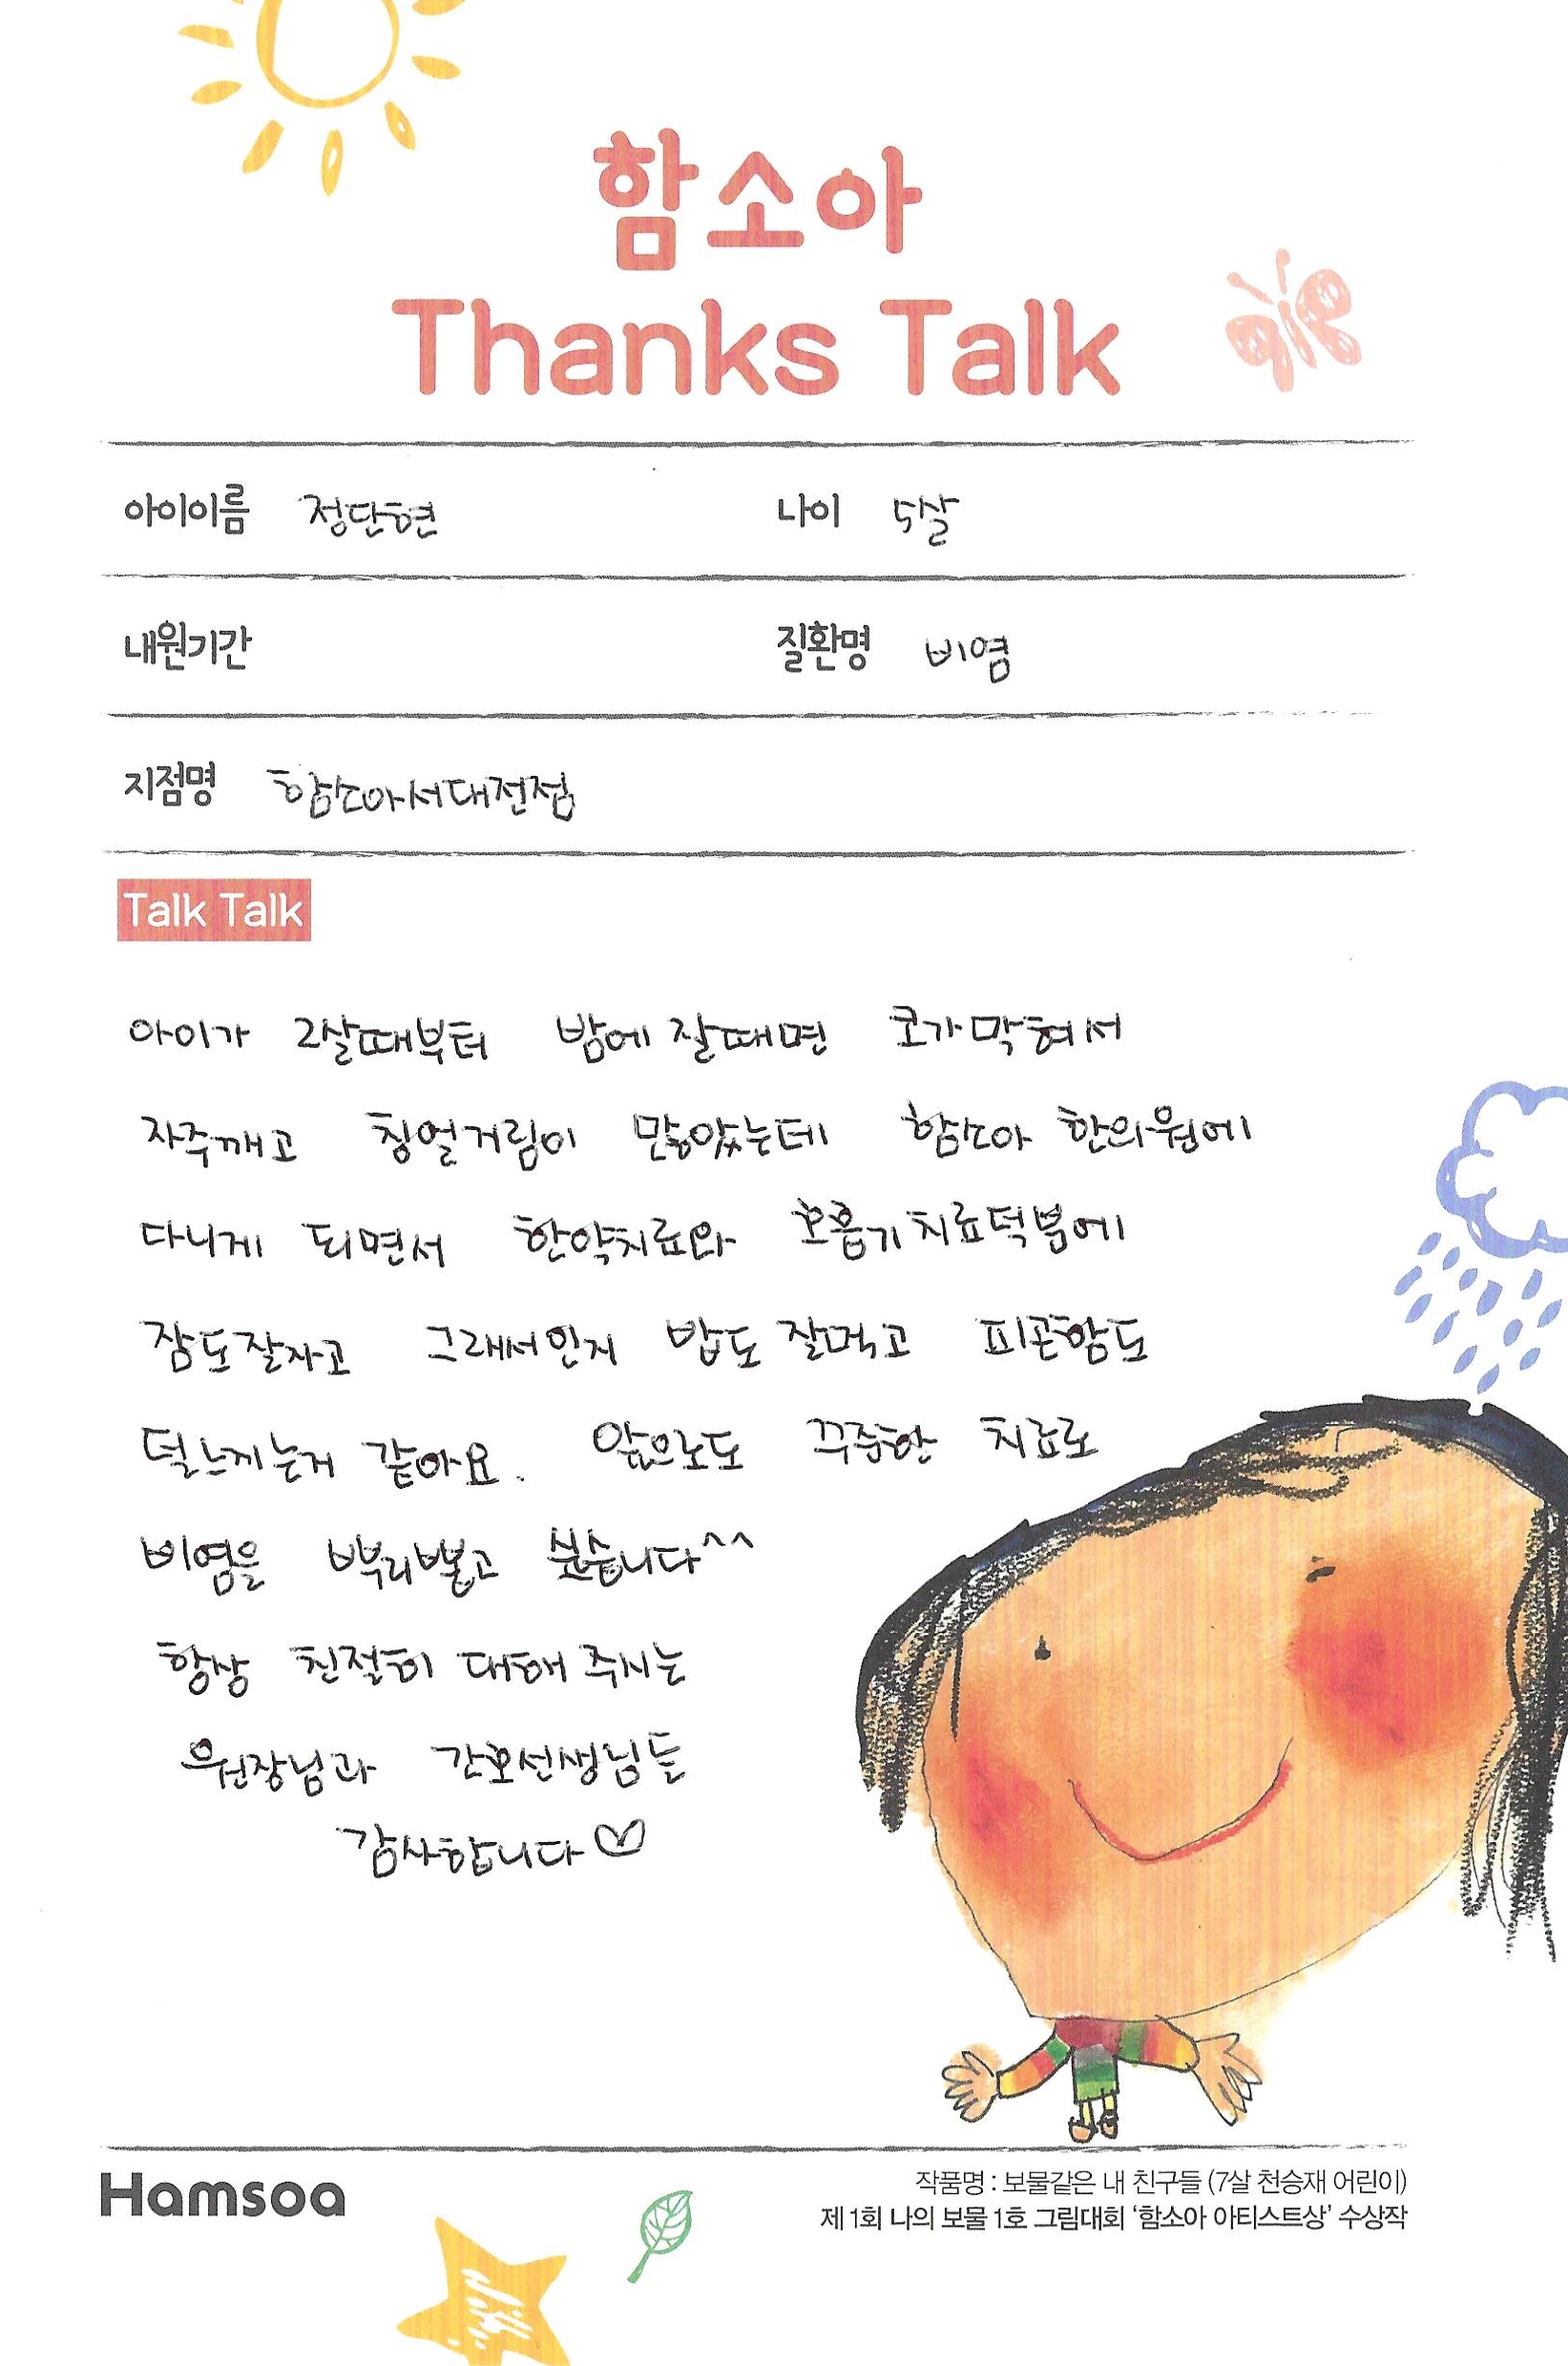 함소아
Thanks Talk
아이이름 정단현 나이 5살
내원기간 질환명 비염
지점명 함소아서대전점
Talk Talk
아이가 2살때부터 밤에 잘때면 코가막혀서
자주깨고 칭얼거림이 많았는데 함소아 한의원에
다니게 되면서 한약치료와 호흡기치료덕분에
잠도잘자고 그래서인지 밥도 잘먹고 피곤함도
덜느끼는거 같아요. 앞으로도 꾸준한 치료로
비염을 뿌리뽑고 싶습니다^^
항상 친절히 대해 주시는
원장님과 간호선생님들
감사합니다♡
Hamsoa
작품명 : 보물같은 내 친구들 (7살 천승재 어린이)
제 1회 나의 보물 1호 그림대회 '함소아 아티스트상' 수상작